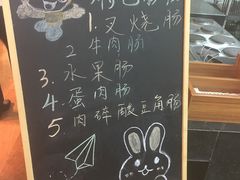 1. 叉烧肠
2 牛肉肠
3. 水果肠
4. 蛋肉肠
5. 肉碎酸豆角肠